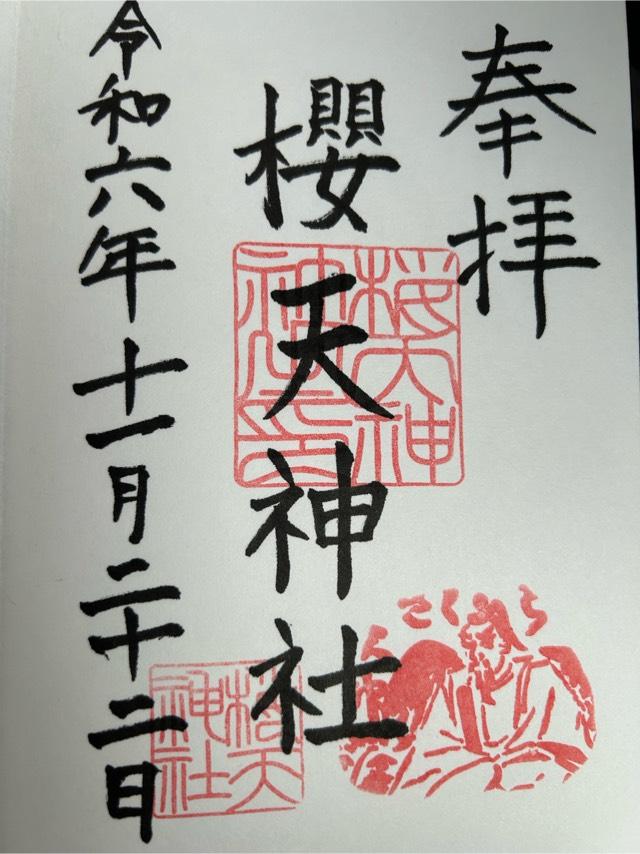 奉拝
櫻天神社
令和六年十一月二十二日
桜天神
桜天
神社
さくら